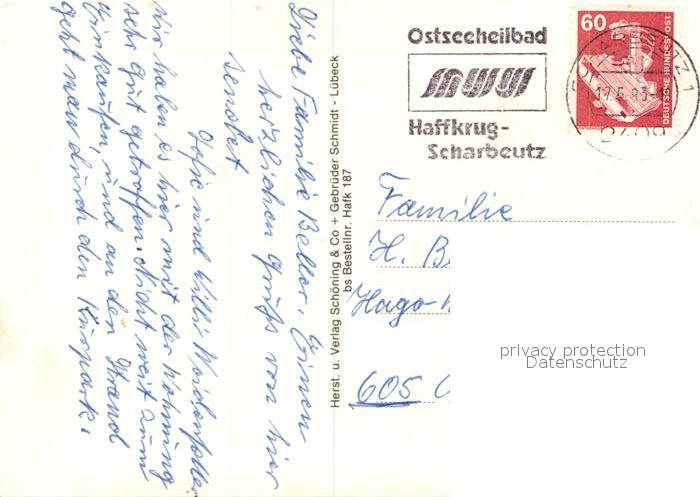 Liebe Familie Beller. Einen
herzlichen Gruß von hier
sendet
Josie und Willi
Wir haben es hier mit der Wohnung
sehr gut getroffen. Nicht weit zum
Einkaufen, und an den Strand
geht man durch den Kurpark.
Herst. u. Verlag Schöning & Co + Gebrüder Schmidt - Lübeck
bs Bestellnr. Hafk 187
Ostseeheilbad
Haffkrug-
Scharbeutz
60
DEUTSCHE BUNDESPOST
Familie
H. B
Hugo-
605
privacy protection
Datenschutz